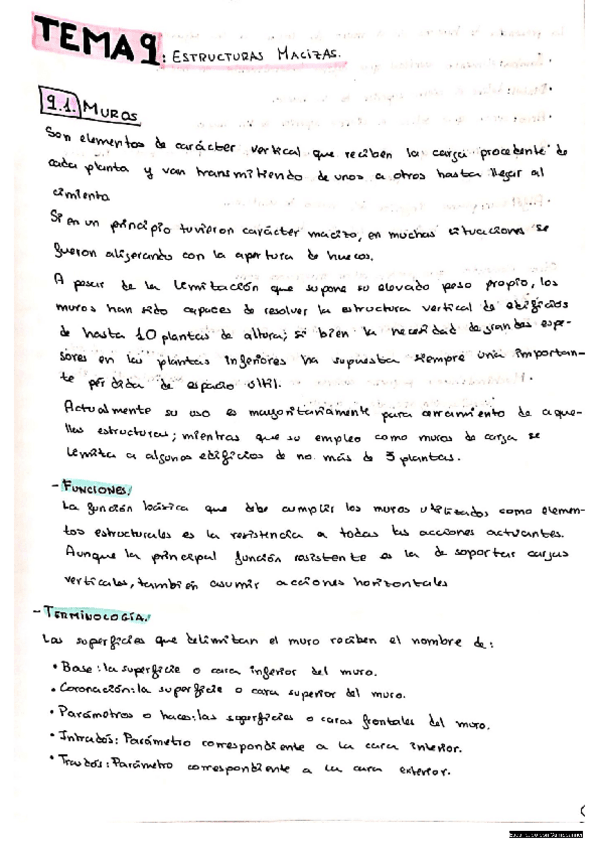 TEMA 9: ESTRUCTURAS MACIZAS.
9.1. MUROS
Son elementos de carácter vertical que reciben la carga procedente de
cada planta y van transmitiendo de unos a otros hasta llegar al
cimiento
Si en un principio tuvieron carácter macizo, en muchas situaciones se
fueron aligerando con la apertura de huecos.
A pesar de la limitación que supone su elevado peso propio, los
muros han sido capaces de resolver la estructura vertical de edificios
de hasta 10 plantas de altura; si bien la necesidad de grandes espe-
sores en las plantas inferiores ha supuesto siempre una importan-
te pérdida de espacio útil.
Actualmente su uso es mayoritariamente para cerramiento de aque-
llas estructuras; mientras que su empleo como muros de carga se
limita a algunos edificios de no más de 3 plantas.
- FUNCIONES/
La función básica que debe cumplir los muros utilizados como elemen-
tos estructurales es la resistencia a todas las acciones actuantes.
Aunque la principal función resistente es la de soportar cargas
verticales, también asumir acciones horizontales
- TERMINOLOGÍA/
Las superficies que delimitan el muro reciben el nombre de:
• Base: la superficie o cara inferior del muro.
• Coronación: la superficie o cara superior del muro.
• Parámetros o haces: las superficies o caras frontales del muro.
• Intradós: Parámetro correspondiente a la cara interior.
• Trasdós: Parámetro correspondiente a la cara exterior.